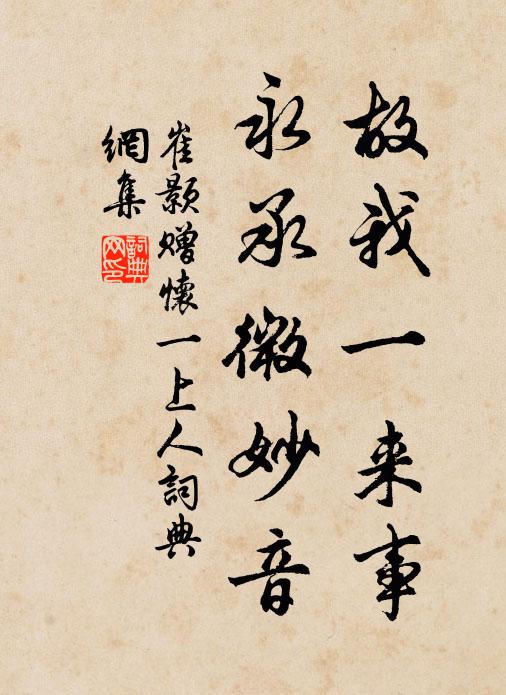 故我一来事
永承微妙音
崔颢赠懷一上人詞典
網集
詞典網印